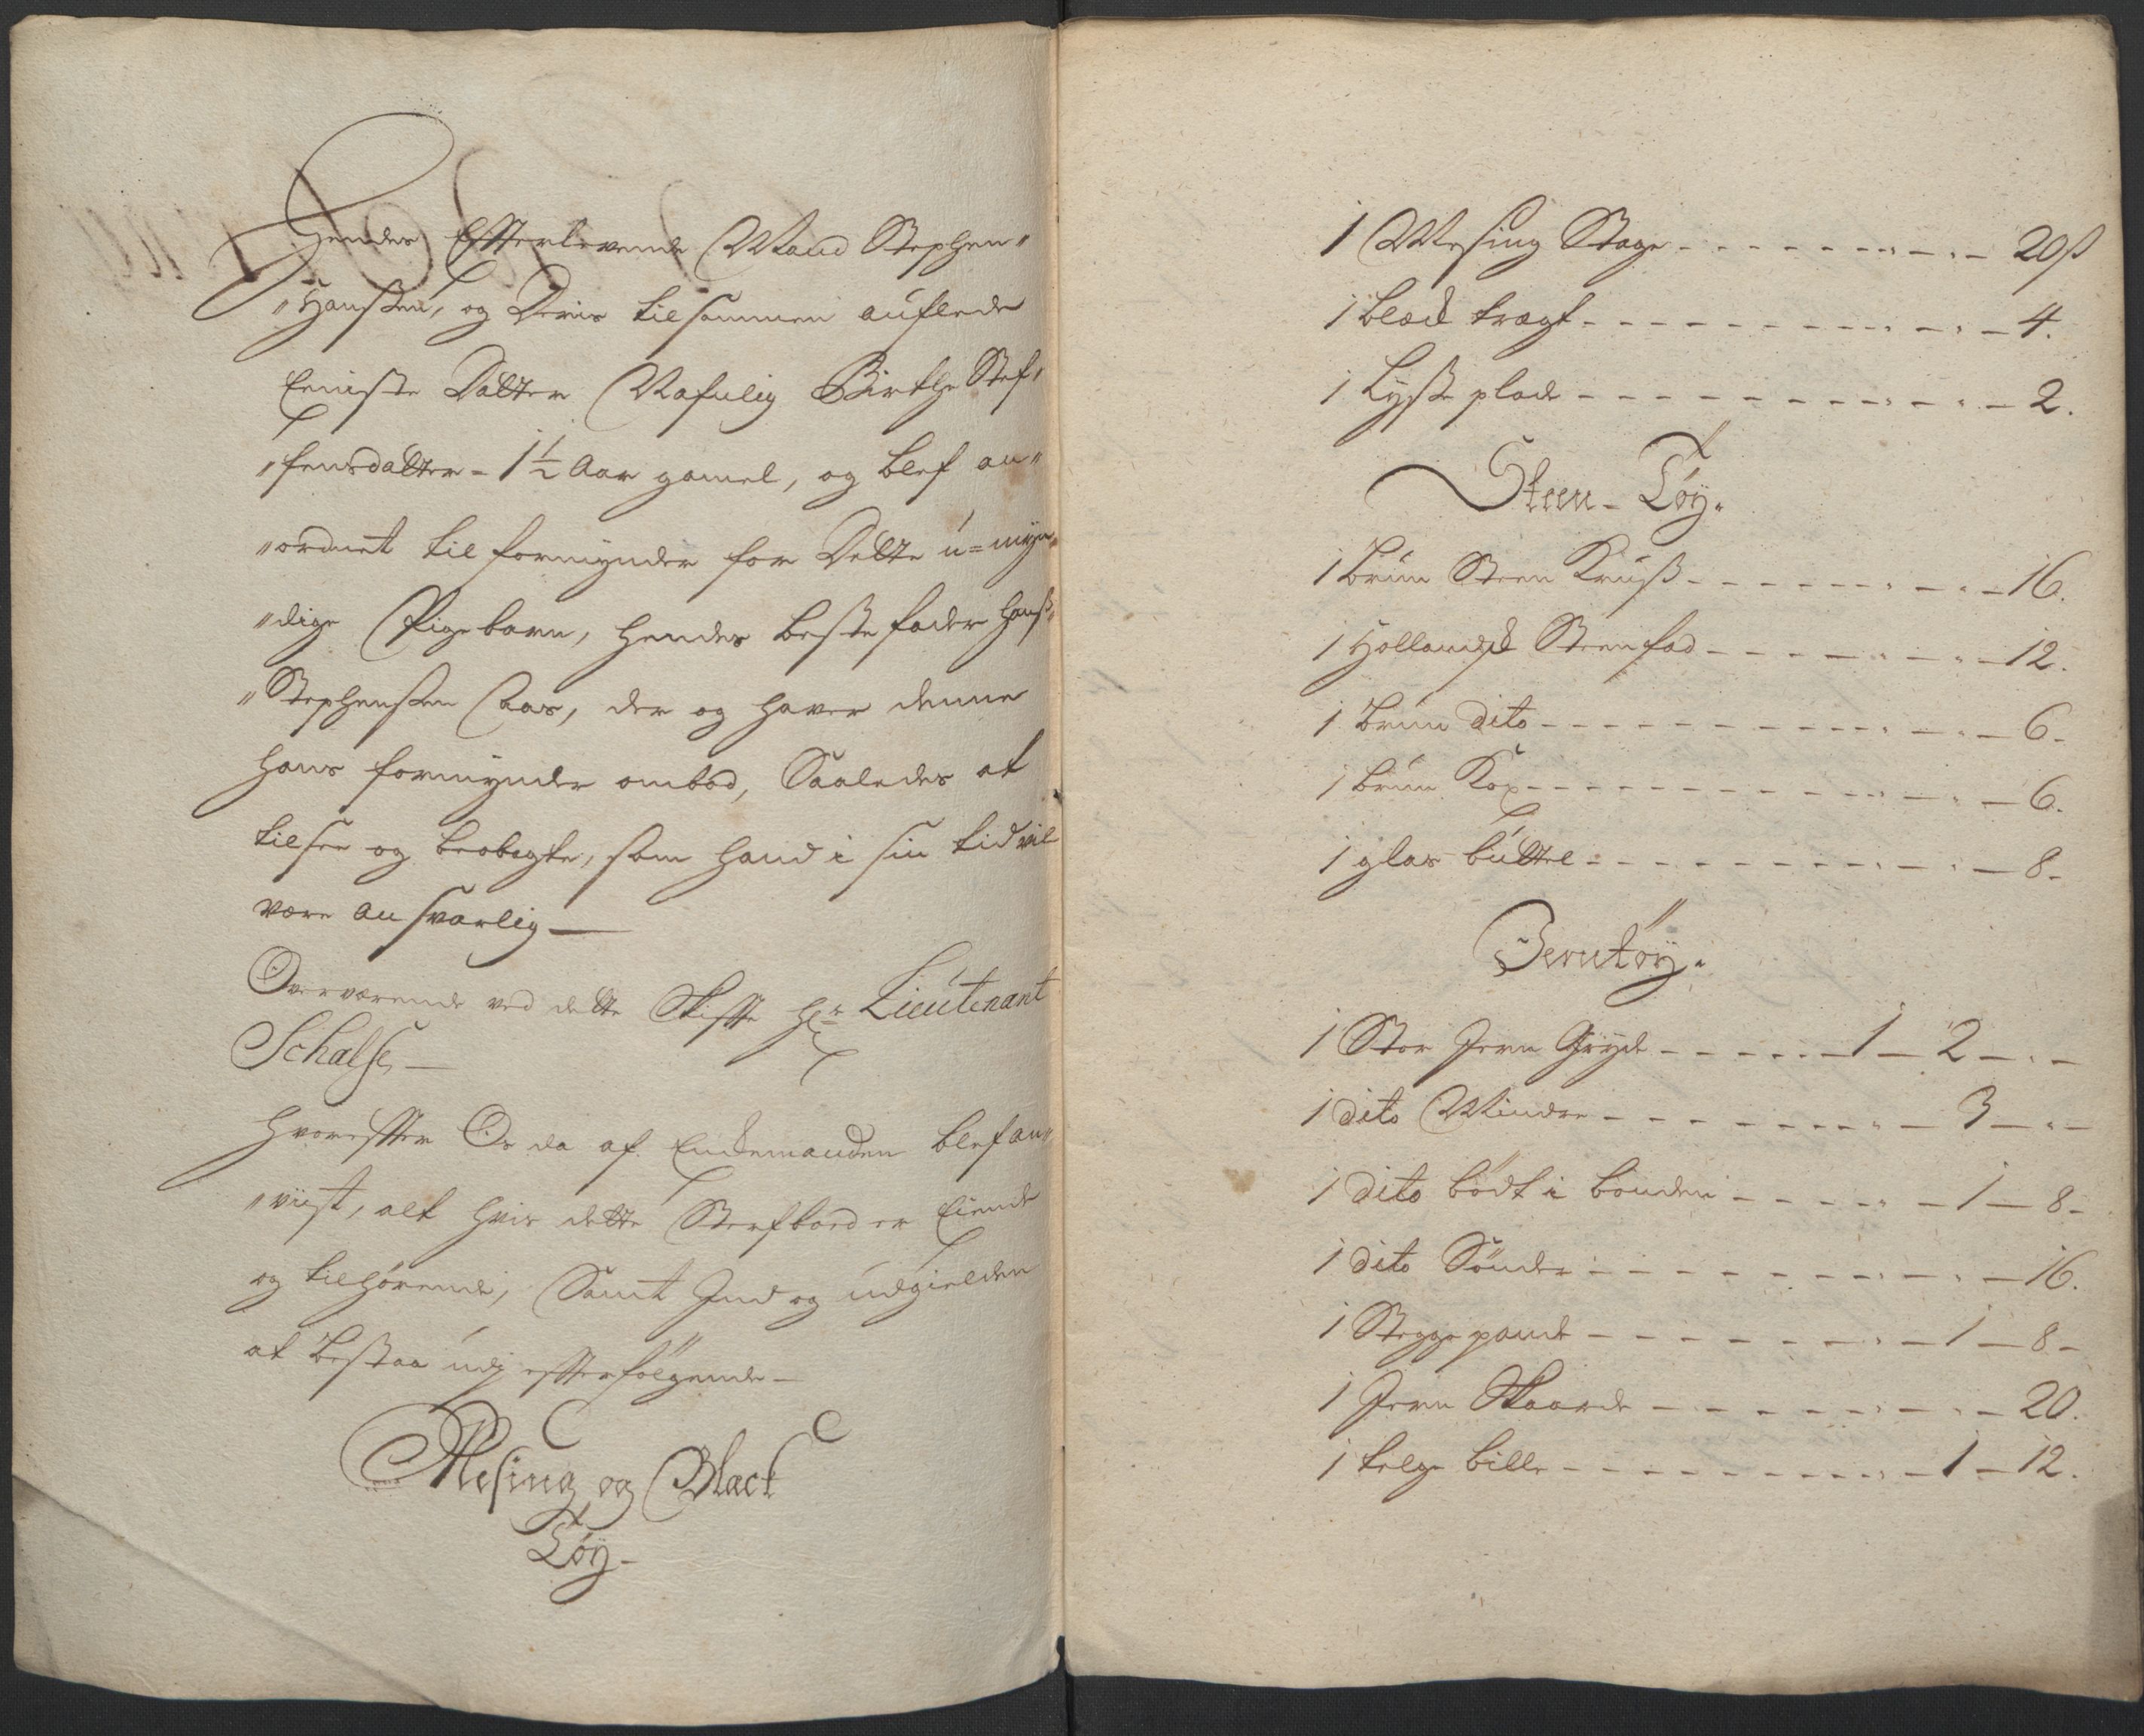 Hendes Efterlevende Mand Stephen"
"Hanssen, og Deris tilsammen auflede
Eeniste Datter Nafnlig Birthe Stef"
"fensdatter - 1½ Aar gamel, og blef an"
"ordnet til formynder for Dette u=myn"
"dige Pigebarn, hendes bestefader Hanß
"Stephenssen Aas, der og haver denne
hans formynder ombod, Saaledes at
tilsee og beobagte, som hand i sin tid vil
være ansvarlig —
Overværende ved dette Skifte Hr Lieutenant
Schalse, —
hvorefter Os da af Enckemanden blef an"
"viist, alt hvis dette Sterfboed er Eiende
og tilhørende, Samt Ind og udgielden
at bestaa udj efterfølgende —
Mesing og Black
Tøy —
1 Mesing Stage - 20 ß
1 black tragt - 4.
1 Lysse plade - 2.
Steen - Tøy.
1 bruun Steen Kruuß - 16.
1 Hollandsk Steenfad - 12.
1 bruun dito - 6.
1 bruun Kop - 6.
1 glas buttel - 8.
Jerntøy.
1 Stor Jern Gryde - 1 - 2 -
1 dito Mindre - 3 -
1 dito bødt i bonden - 1 - 8.
1 dito Sönder - 16.
1 Steggepande - 1 - 8.
1 Jern Skaarde - 20.
1 telge bille - 1 - 12.